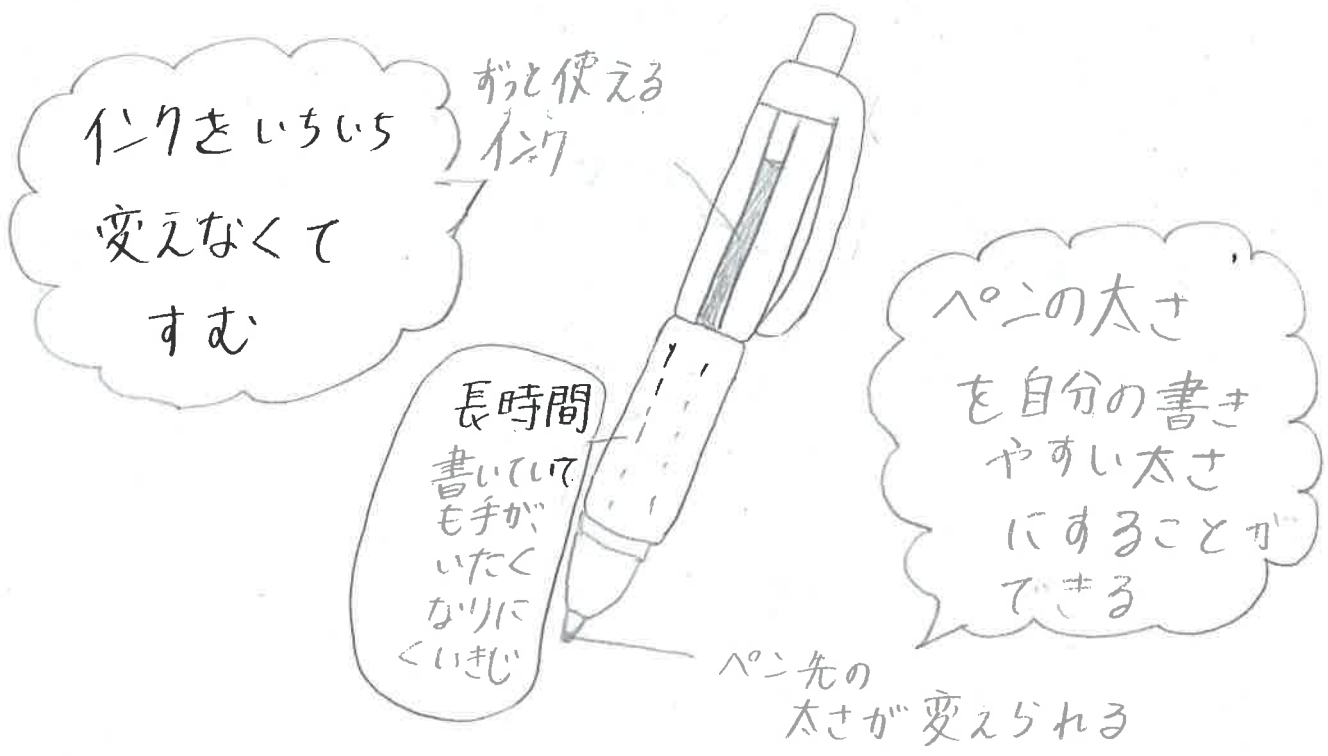 インクをいちいち
変えなくて
すむ
ずっと使える
インク
長時間
書いていて
も手が、
いたく
なりに
くいきじ
ペンの太さ
を自分の書き
やすい太さ
にすることが
できる
ペン先の
太さが変えられる